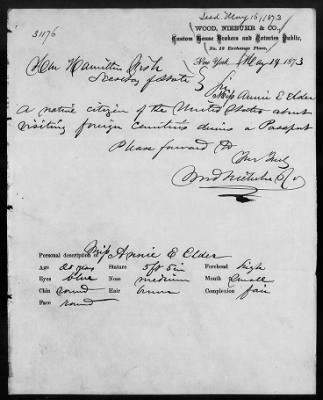 Issd. May 16/1873
31176
WOOD, NIEBUHR & CO.,
Custom House Brokers and Notaries Public,
No. 18 Exchange Place,
New York May 14 1873
Hon Hamilton Fish
Secretary of State
Sir
Miss Annie E Elder
a native citizen of the United States about
visiting foreign countries desires a Passport
Please forward to
Wood Niebuhr & Co
Personal description of Miss Annie E Elder
Age 20 years Stature 5 ft 5 in Forehead high
Eyes blue Nose medium Mouth small
Chin round Hair brown Complexion fair
Face round